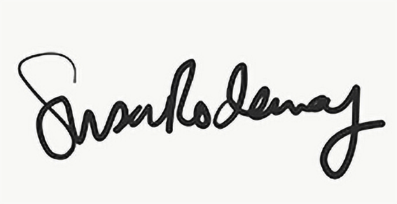 Susan Rodemay